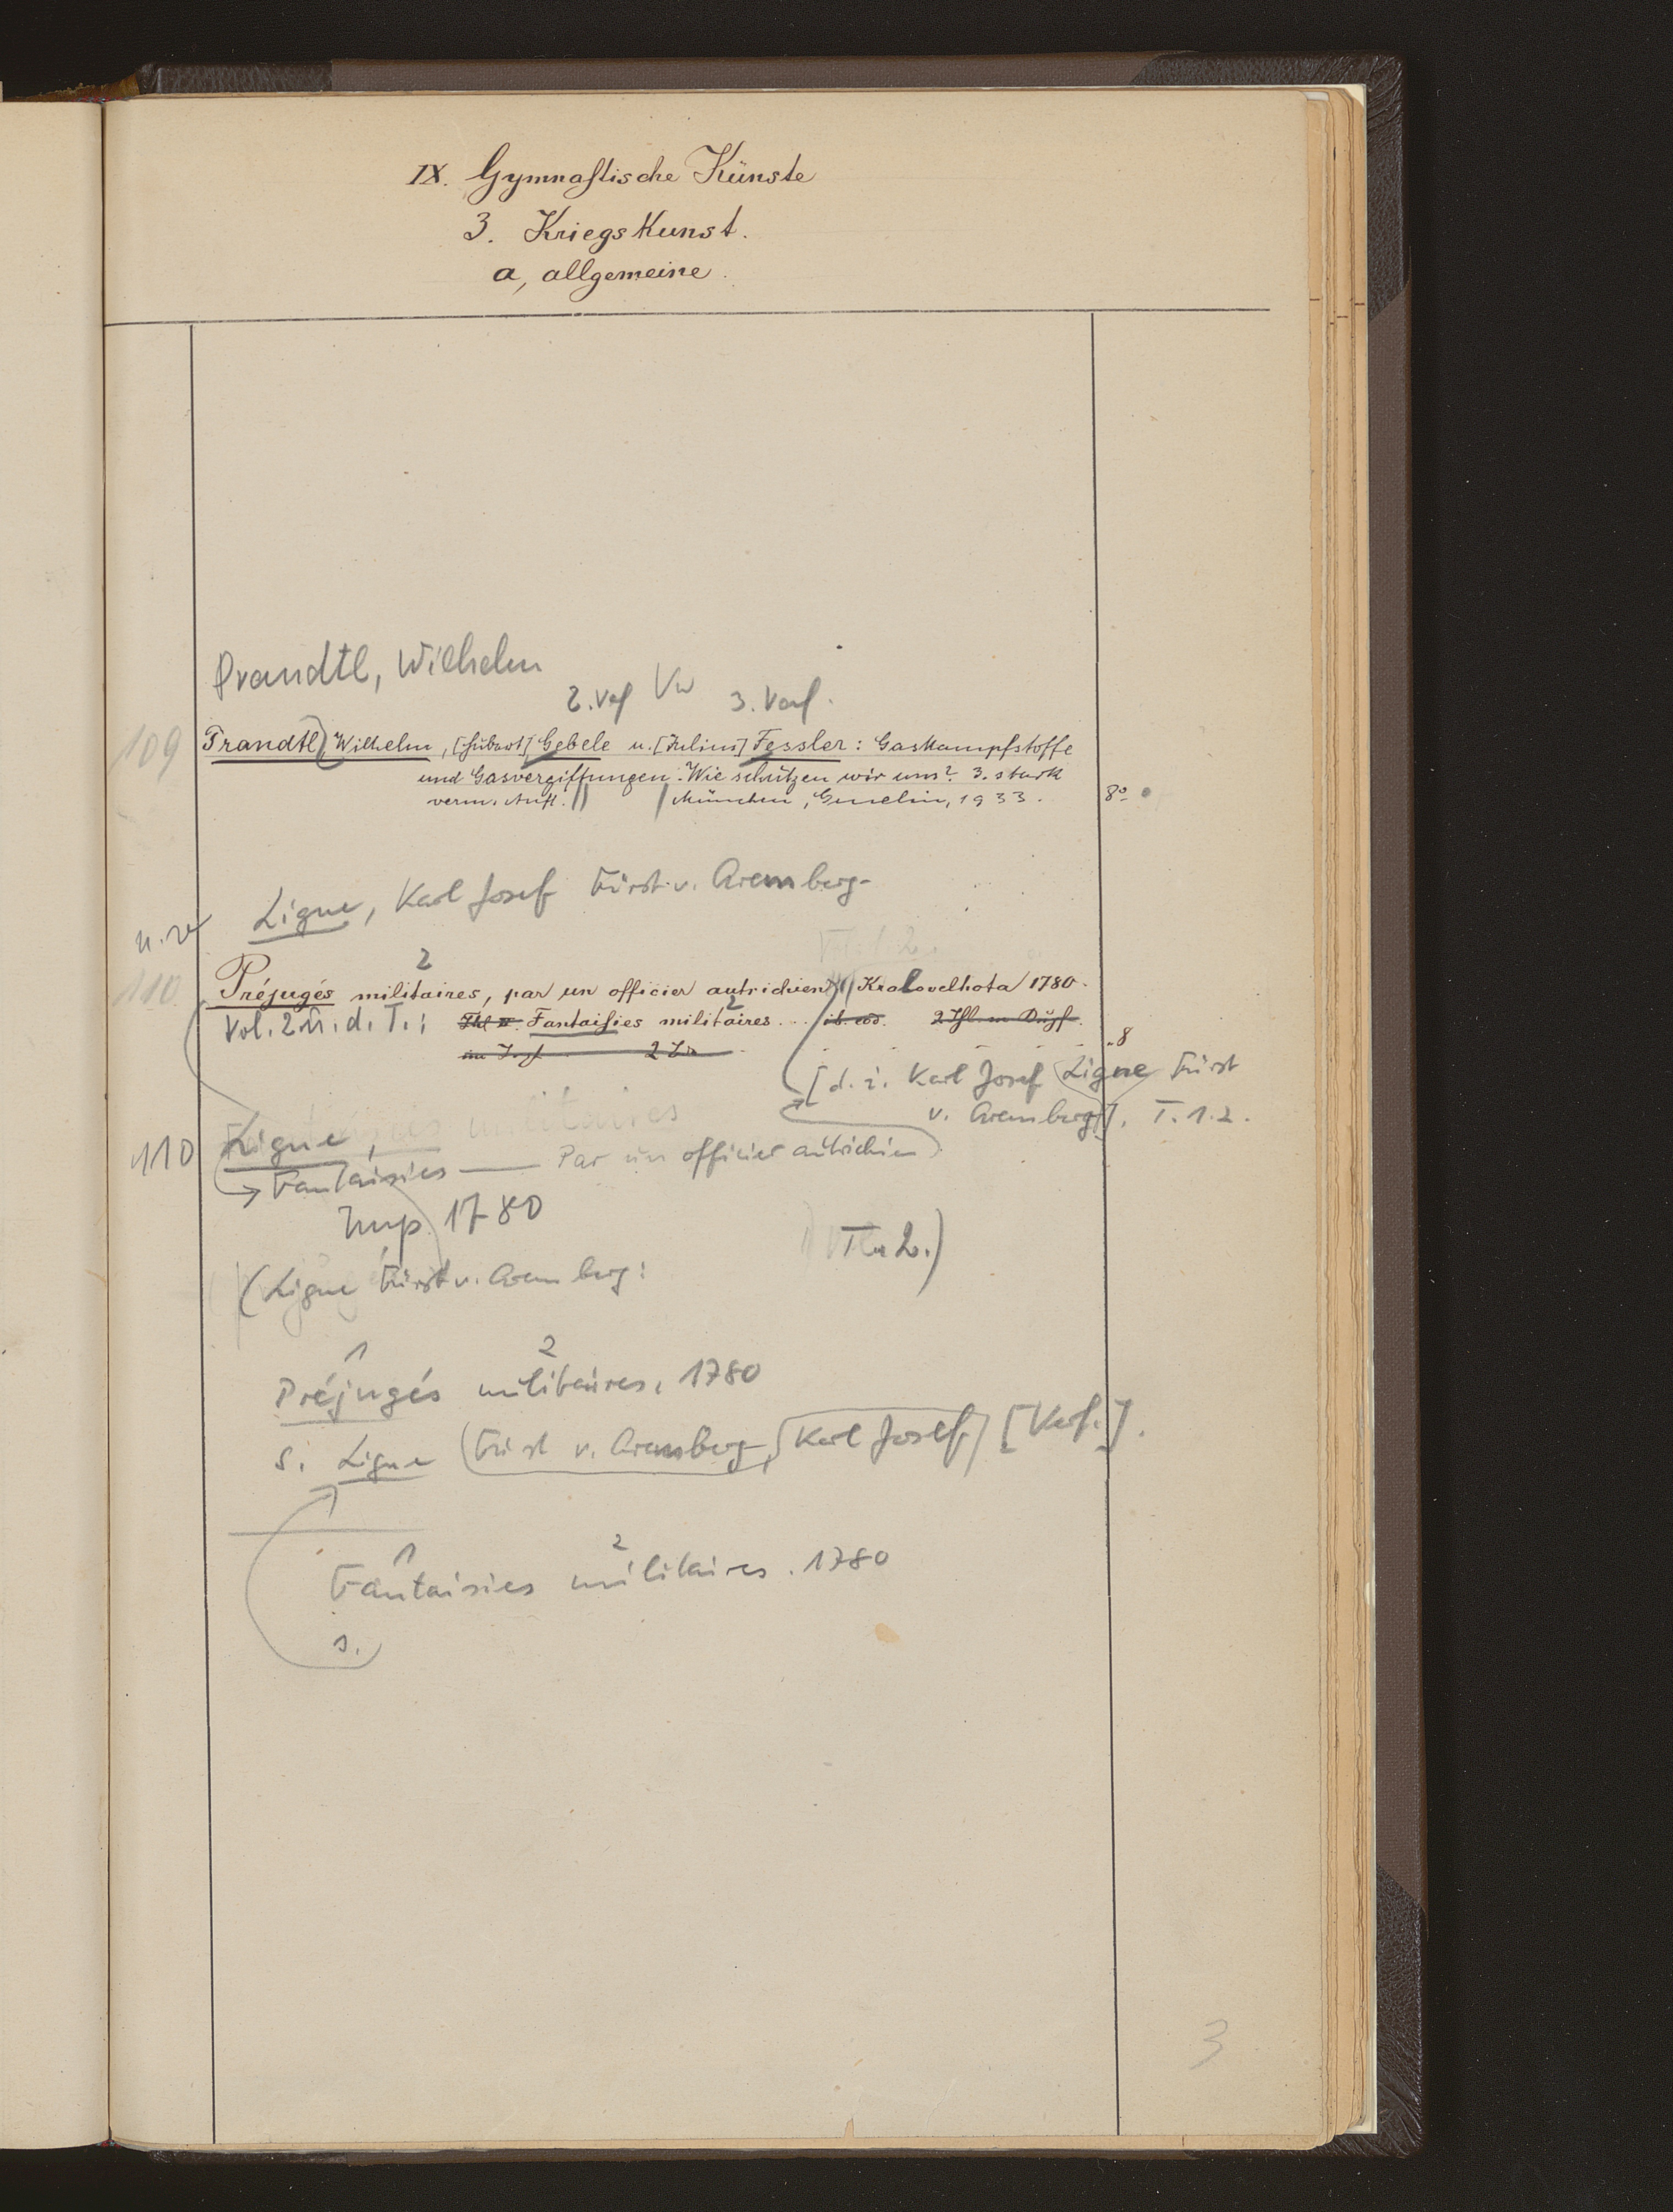 IX. Gymnastische Künste
3. Kriegskunst.
a, allgemeine.
Prandtl, Wilhelm
2. Verf Vw 3. Verf.
109 Prandtl, Wilhelm, [Hubert] Gebele u. [Julius] Fessler: Gaskampfstoffe
und Gasvergiftungen. Wie schützen wir uns? 3. stark
verm. Aufl. München, Gmelin, 1933. 8°
Ligne, Karl Josef Fürst v. Aremberg-
2
110 Préjugés militaires, par un officier autrichien Kralovelhota 1780.
Vol. 2 u. d. T.: Thl II. Fantaisies militaires... ib. eod.
2
8
[d. i. Karl Josef Ligne Fürst
v. Aremberg]. T. 1.2.
110 Ligne,
Fantaisies — Par un officier autrichien
1780
T. 2.)
(Ligne Fürst v. Aremberg:
1 2
Préjugés militaires, 1780
s. Ligne (Fürst v. Aremberg, Karl Josef) [Verf.].
1 2
Fantaisies militaires. 1780
s.
3